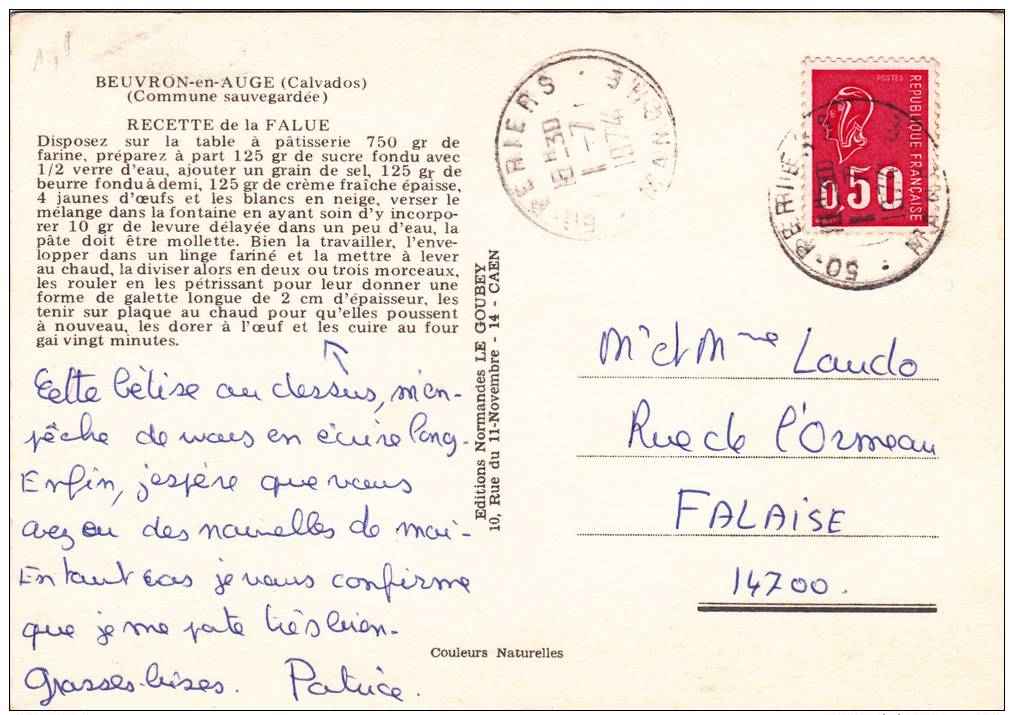 BEUVRON-en-AUGE (Calvados)
(Commune sauvegardée)
RECETTE de la FALUE
Disposez sur la table à pâtisserie 750 gr de
farine, préparez à part 125 gr de sucre fondu avec
1/2 verre d'eau, ajouter un grain de sel, 125 gr de
beurre fondu à demi, 125 gr de crème fraîche épaisse,
4 jaunes d'œufs et les blancs en neige, verser le
mélange dans la fontaine en ayant soin d'y incorpo-
rer 10 gr de levure délayée dans un peu d'eau, la
pâte doit être mollette. Bien la travailler, l'enve-
lopper dans un linge fariné et la mettre à lever
au chaud, la diviser alors en deux ou trois morceaux,
les rouler en les pétrissant pour leur donner une
forme de galette longue de 2 cm d'épaisseur, les
tenir sur plaque au chaud pour qu'elles poussent
à nouveau, les dorer à l'œuf et les cuire au four
gai vingt minutes.
Cette bêtise au dessus, m'em-
pêche de vous en écrire long.
Enfin, j'espère que vous
avez eu des nouvelles de moi-
En tout cas je vous confirme
que je me porte très bien-
Grosses bises. Patrice.
Editions Normandes LE GOUBEY
10, Rue du 11-Novembre - 14 - CAEN
Couleurs Naturelles
50-PERIERS
18H30
1-7
1974
MANCHE
POSTES
REPUBLIQUE FRANÇAISE
0,50
50-PERIERS
MANCHE
Mr et Mme Laudo
Rue de l'Ormeau
FALAISE
14700.